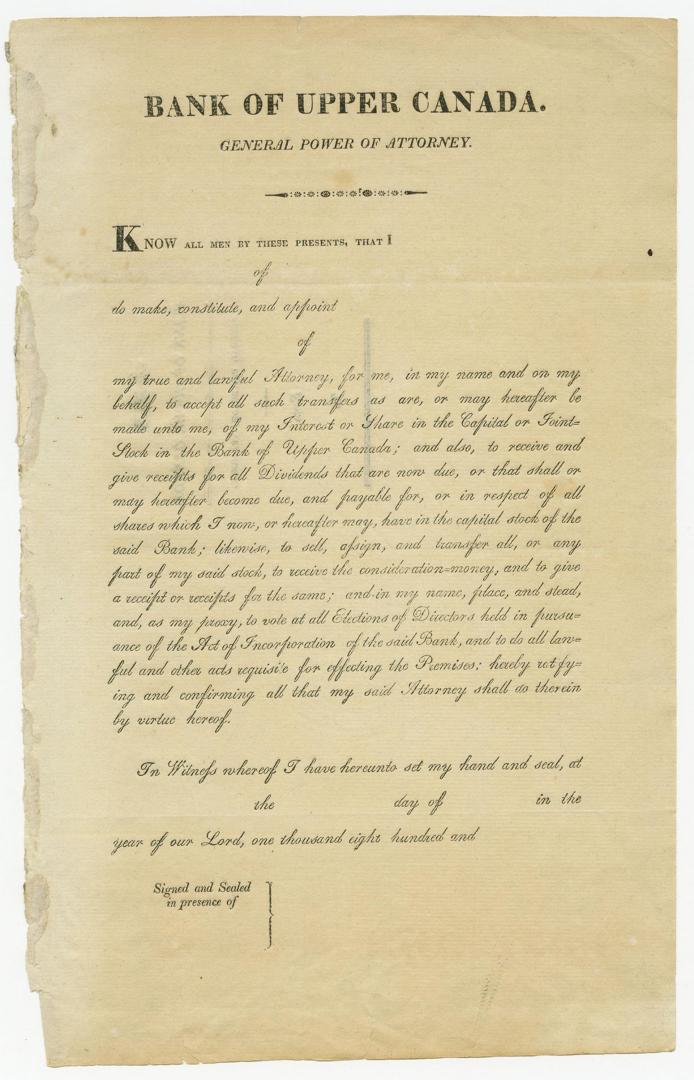 BANK OF UPPER CANADA.
GENERAL POWER OF ATTORNEY.
KNOW ALL MEN BY THESE PRESENTS, THAT I
of
do make, constitute, and appoint
of
my true and lawful Attorney, for me, in my name and on my
behalf, to accept all such transfers as are, or may hereafter be
made unto me, of my Interest or Share in the Capital or Joint=
Stock in the Bank of Upper Canada; and also, to receive and
give receipts for all Dividends that are now due, or that shall or
may hereafter become due, and payable for, or in respect of all
shares which I now, or hereafter may, have in the capital stock of the
said Bank; likewise, to sell, aſsign, and transfer all, or any
part of my said stock, to receive the consideration=money, and to give
a receipt or receipts for the same; and in my name, place, and stead,
and, as my proxy, to vote at all Elections of Directors held in pursu=
ance of the Act of Incorporation of the said Bank, and to do all law=
ful and other acts requisi'e for effecting the Premises; hereby rat fy=
ing and confirming all that my said Attorney shall do therein
by virtue hereof.
In Witneſs whereof I have hereunto set my hand and seal, at
the day of in the
year of our Lord, one thousand eight hundred and
Signed and Sealed
in presence of